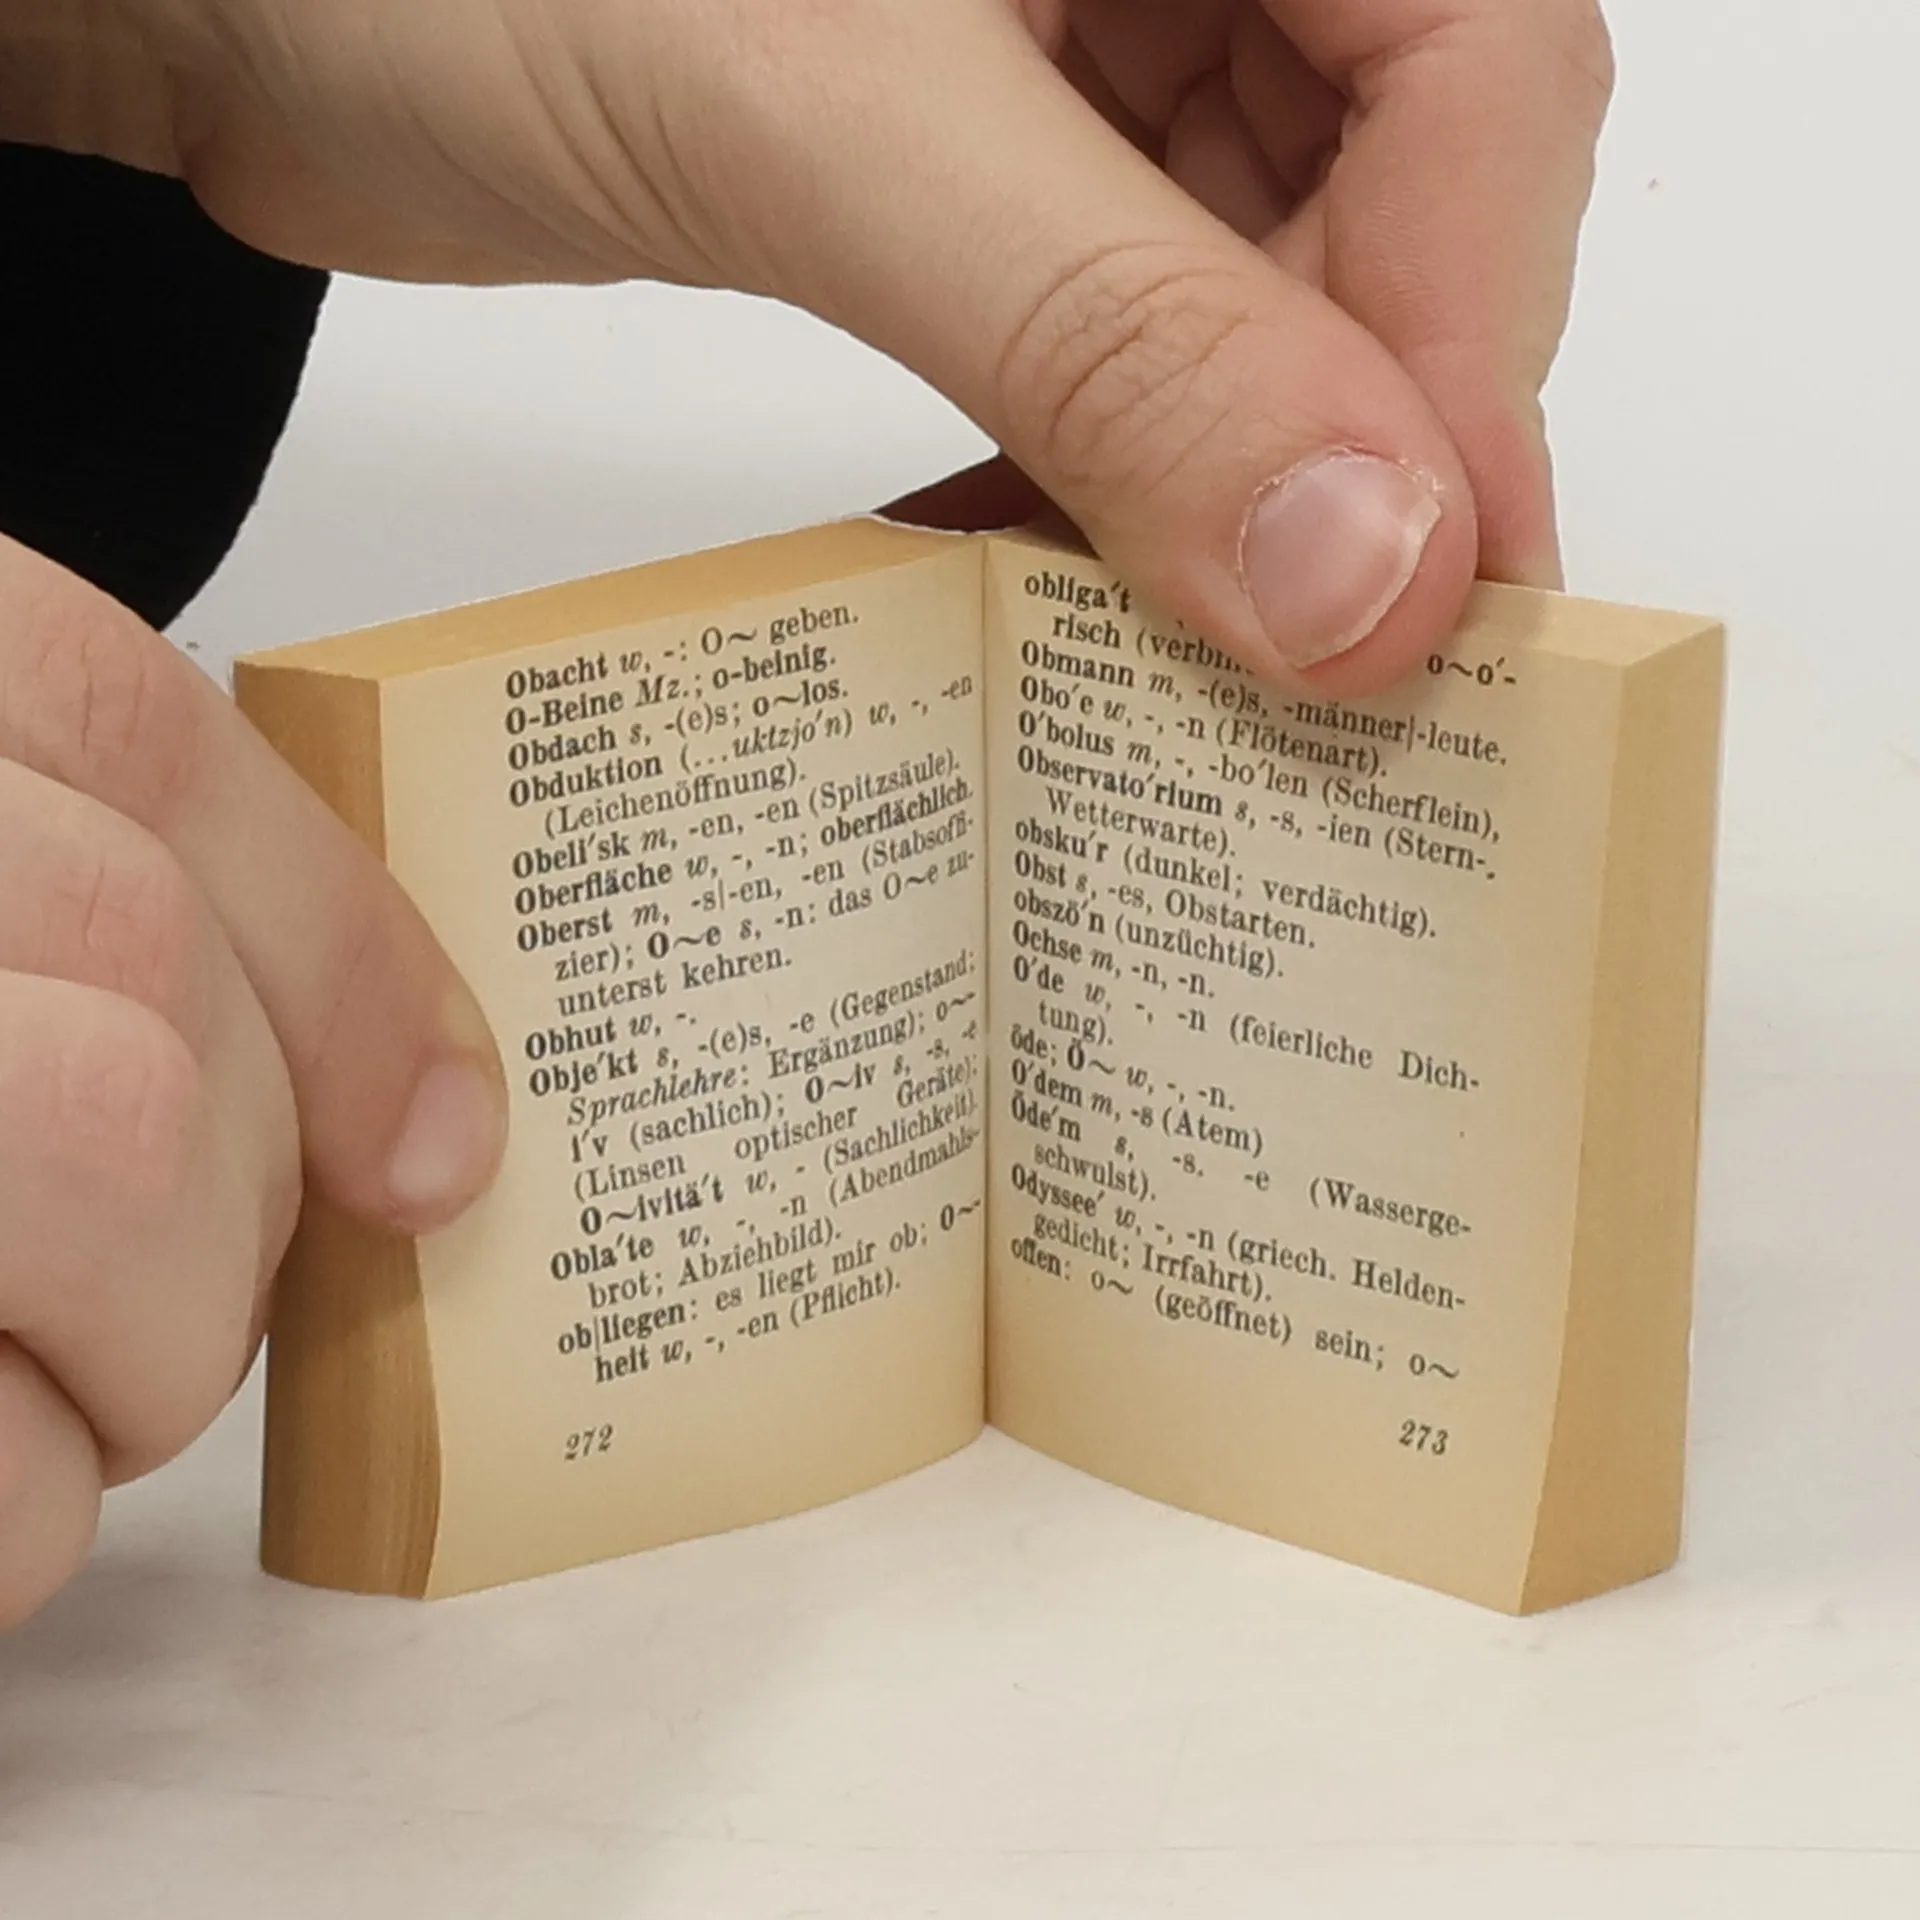 Obacht w, -: O~ geben.
O-Beine Mz.; o-beinig.
Obdach s, -(e)s; o~los.
Obduktion (...uktzjo′n) w, -, -en
(Leichenöffnung).
Obeli′sk m, -en, -en (Spitzsäule).
Oberfläche w, -, -n; oberflächlich.
Oberst m, -s|-en, -en (Stabsoffi-
zier); O~e s, -n: das O~e zu-
unterst kehren.
Obhut w, -.
Obje′kt s, -(e)s, -e (Gegenstand;
Sprachlehre: Ergänzung); o~-
i′v (sachlich); O~iv s, -s, -e
(Linsen optischer Geräte);
O~ivitä′t w, - (Sachlichkeit).
Obla′te w, -, -n (Abendmahls-
brot; Abziehbild).
ob|liegen: es liegt mir ob; O~-
heit w, -, -en (Pflicht).
272
obliga′t o~o′-
risch
Obmann m, -(e)s, -männer|-leute.
Obo′e w, -, -n (Flötenart).
O′bolus m, -, -bo′len (Scherflein),
Observato′rium s, -s, -ien (Stern-,
Wetterwarte).
obsku′r (dunkel; verdächtig).
Obst s, -es, Obstarten.
obszö′n (unzüchtig).
Ochse m, -n, -n.
O′de w, -, -n (feierliche Dich-
tung).
öde; Ö~ w, -, -n.
O′dem m, -s (Atem)
Öde′m s, -s. -e (Wasserge-
schwulst).
Odyssee′ w, -, -n (griech. Helden-
gedicht; Irrfahrt).
offen: o~ (geöffnet) sein; o~
273